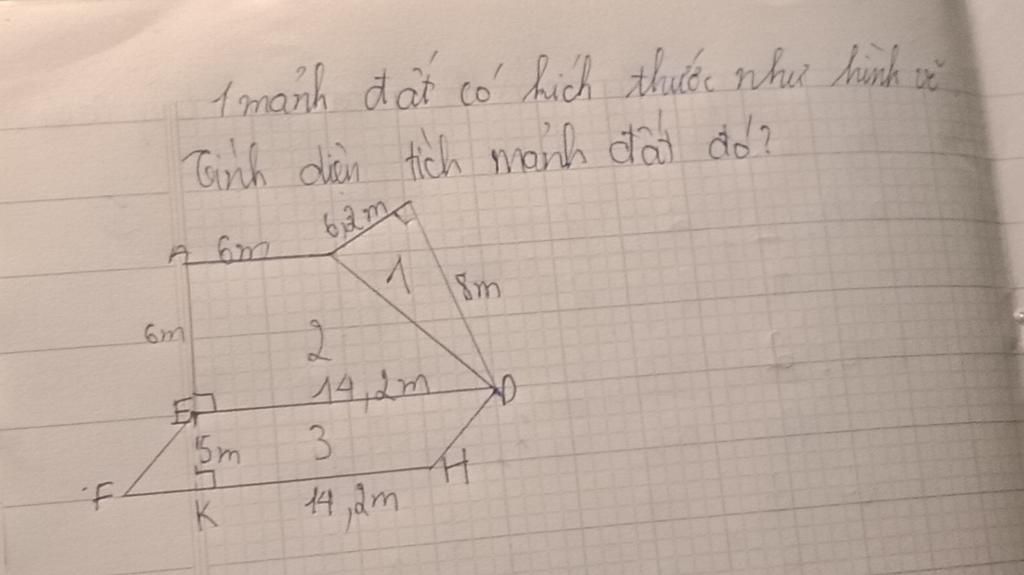 1 mảnh đất có kích thước như hình vẽ
Tính diện tích mảnh đất đó?
6,2m
A 6m
1
8m
6m
2
14,2m
E
D
5m
3
F
H
K
14,2m